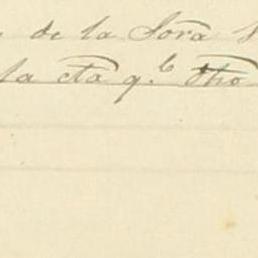 de la Sora
la cta q.e dho